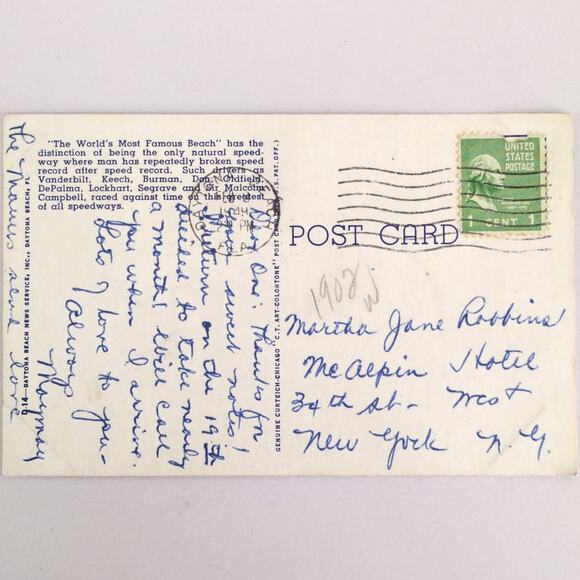 "The World's Most Famous Beach" has the
distinction of being the only natural speed-
way where man has repeatedly broken speed
record after speed record. Such drivers as
Vanderbilt, Keech, Burman, Don, Oldfield,
DePalma, Lockhart, Segrave and Sir Malcolm
Campbell, raced against time on this greatest
of all speedways.
Dear One: Thanks for
your sweet notes!
Return on the 19th
a month! Will call
you when I arrive.
Lots of love to you -
Always
The Moores send love
D 14—DAYTONA BEACH NEWS SERVICE, INC., DAYTONA BEACH, FL
GENUINE CURTEICH-CHICAGO "C.T. ART-COLORTONE" POST CARD (REG. U.S. PAT. OFF.)
DAYTONA BEACH
1944
PM
FLA.
UNITED
STATES
POSTAGE
WASHINGTON
1 CENT 1
POST CARD
1902 W
Martha Jane Robbins
McAlpin Hotel
34th St - West
New York N.Y.